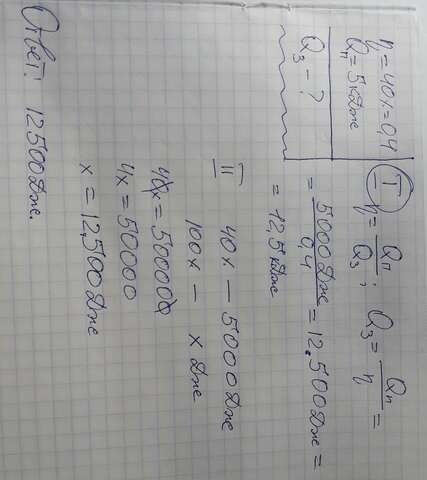 η = 40% = 0,4
Qп = 5 кДж
Q₃ - ?
I η = Qп/Q₃ ; Q₃ = Qп/η =
= 5000 Дж/0,4 = 12.500 Дж =
= 12,5 кДж
II 40% — 5000 Дж
100% — x Дж
40x = 500000
4x = 50000
x = 12,500 Дж
Ответ: 12500 Дж.